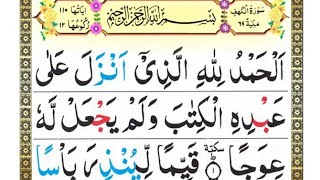 اٰیَاتُهَا ١١٠
رُكُوْعُهَا ١٢
بِسْمِ اللّٰهِ الرَّحْمٰنِ الرَّحِیْمِ
سُوْرَةُ الْكَهْفِ
مَكِّیَّةٌ ٦٩
اَلْحَمْدُ لِلّٰهِ الَّذِیْۤ اَنْزَلَ عَلٰی
عَبْدِهِ الْكِتٰبَ وَلَمْ یَجْعَلْ لَّهٗ
عِوَجًا ١ سكتة قَیِّمًا لِّیُنْذِرَ بَاْسًا